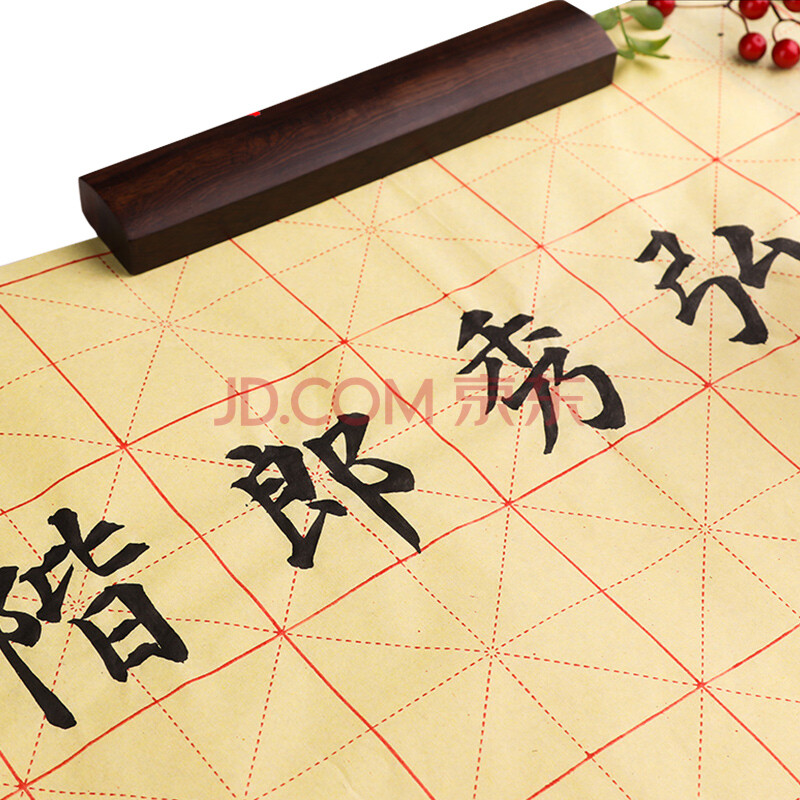 階郎秀弘
JD.COM 京东